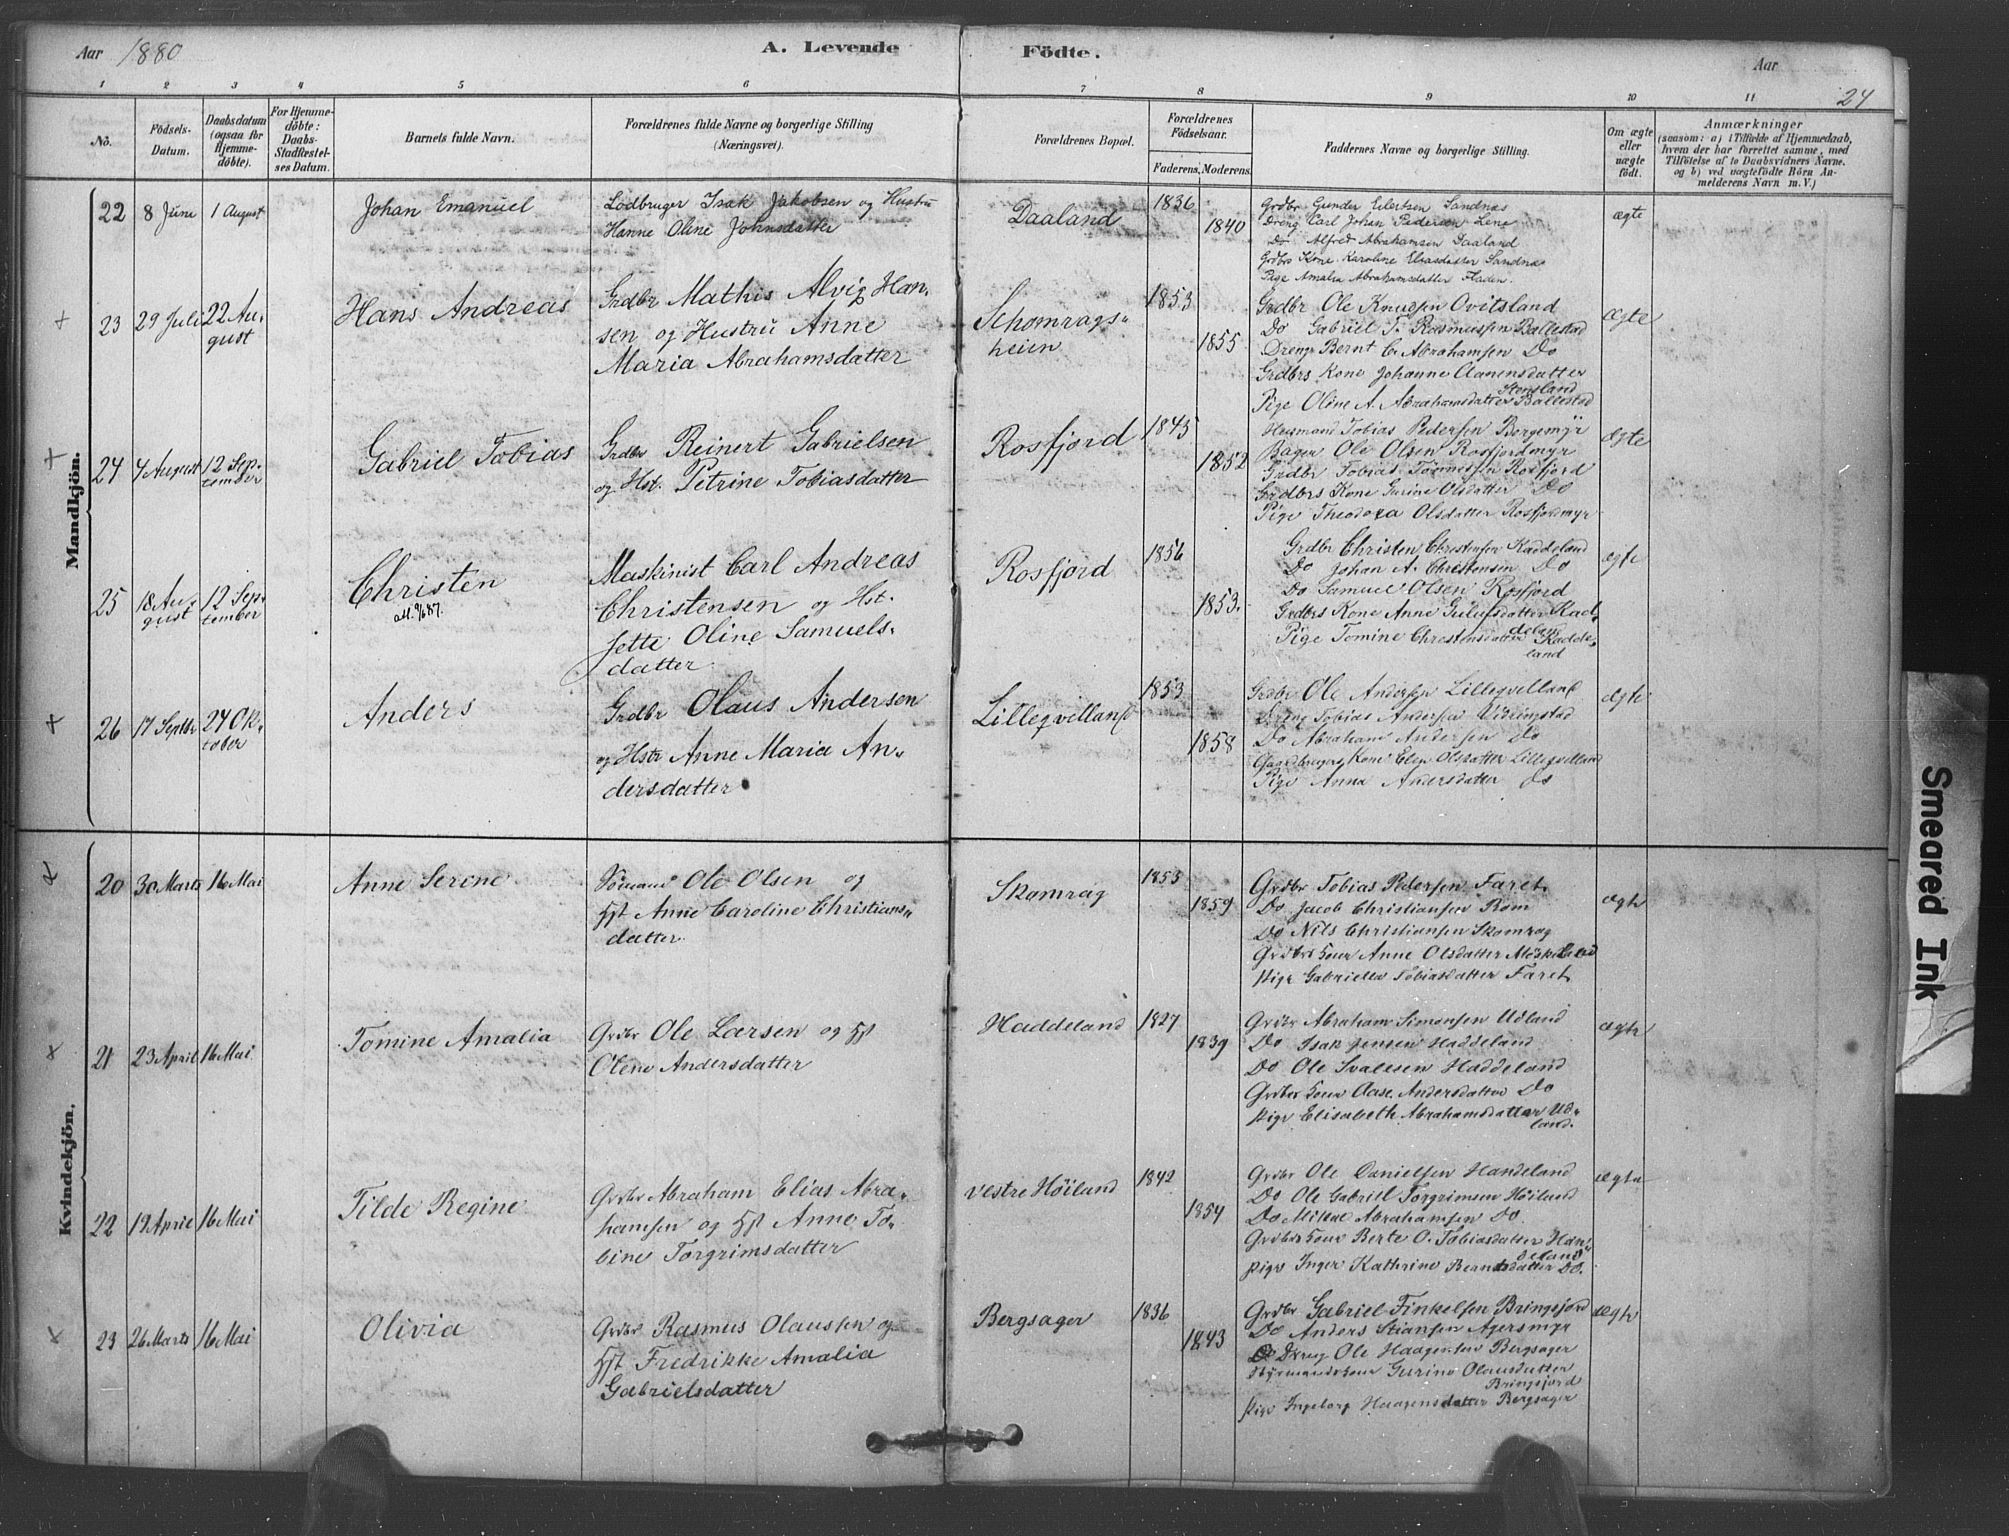 Aar 1880
A. Levende Födte.
Aar
24
1 2 3 4 5 6 7 8 9 10 11
No.
Födsels-Datum.
Daabsdatum (ogsaa for Hjemme-döbte).
For Hjemme-döbte: Daabs-Stadfæstel-ses Datum.
Barnets fulde Navn.
Forældrenes fulde Navne og borgerlige Stilling (Næringsvei).
Forældrenes Bopæl.
Forældrenes Födselsaar.
Faderens. Moderens.
Faddernes Navne og borgerlige Stilling.
Om ægte eller uægte födt.
Anmærkninger
(saasom: a) i Tilfælde af Hjemmedaab, hvem der har forrettet samme, med Tilföielse af to Daabsvidners Navne, og b) ved uægtefödte Börn An-melderens Navn m. V.)
Mandkjön.
22 8 Juni 1 August
Johan Emanuel
Lodbruger Isak Jakobsen og Hustru
Hanne Oline Johnsdatter
Daaland
1836
1840
Grdbr Gunder Eilertsen Sandnæs
Dreng Carl Johan Pedersen Lene
Do Alfred Abrahamsen Daaland
Grdbrs Kone Karoline Eliasdatter Sandnæs
Pige Amalia Abrahamsdatter Fladen.
ægte
23 29 Juli 22 Au-
gust
Hans Andreas
Grdbr Mathis Alvig Han-
sen og Hustru Anne
Maria Abrahamsdatter
Schomrags-
heien
1853
1855
Grdbr Ole Knudsen Ovitsland
Do Gabriel T. Rasmussen Ballestad
Dreng Bernt C. Abrahamsen Do
Grdbrs Kone Johanne Aanensdatter
Stensland
Pige Oline A. Abrahamsdatter Ballestad
Ægte
24 4 August 12 Sep-
tember
Gabriel Tobias
Grdbr Reinert Gabrielsen
og Hst. Petrine Tobiasdatter
Rosfjord
1845
1852
Husmand Tobias Pedersen Borgemyr
Bager Ole Olsen Rosfjordmyr
Grdbr Tobias Tönnessen Rosfjord
Grdbrs Kone Gurine Olsdatter Do
Pige Theodora Olsdatter Rosfjordmyr
Ægte
25 18 Au-
gust
12 Sep-
tember
Christen
Maskinist Carl Andreas
Christensen og Hst.
Jette Oline Samuels-
datter
Rosfjord
1856
1853.
Grdbr Christen Christensen Kaddeland
Do Johan A. Christensen Do
Do Samuel Olsen Rosfjord
Grdbrs Kone Anne Gulufsdatter Kad-
deland
Pige Tomine Christensdatter Kadde-
land
Ægte
26 17 Septbr 24 Ok-
tober
Anders
Grdbr Olaus Andersen
og Hstr Anne Maria An-
dersdatter
Lilleqvelland
1853
1858
Grdbr Ole Andersen Lilleqvelland
Dreng Tobias Andersen Vidringstad
Do Abraham Andersen do
Gaardbrugers Kone Elen Olsdatter Lilleqvelland
Pige Anna Andersdatter do
Ægte
Kvindekjön.
20 30 Marts 16 Mai
Anne Serene
Sömand Ole Olsen og
Hst Anne Caroline Christians-
datter
Skomrag
1853
1859
Grdbr Tobias Pedersen Faret
Do Jacob Christiansen Rom
Do Nils Christiansen Skomrag
Grdbrs Kone Anne Olsdatter
Pige Gabriella Tobiasdatter Faret
Ægte
21 23 April 16 Mai
Tomine Amalia
Grdbr Ole Larsen og Hst
Olene Andersdatter
Haddeland
1827
1839
Grdbr Abraham Simonsen Udland
Do Isak Jensen Haddeland
Do Ole Svalesen Haddeland
Grdbrs Kone Aase Andersdatter Do
Pige Elisabeth Abrahamsdatter Ud-
land.
Ægte
22 19 April 16 Mai
Tilde Regine
Grdbr Abraham Elias Abra-
hamsen og Hst Anne To-
bine Torgrimsdatter
vestre Höiland
1842
1854
Grdbr Ole Danielsen Handeland
Do Ole Gabriel Torgrimsen Höiland
Do Mikal Abrahamsen Do
Grdbrs Kone Berte O. Tobiasdatter Han-
deland
Pige Inger Kathrine Berntsdatter Do.
Ægte
23 26 Marts 16 Mai
Olivia
Grdbr Rasmus Olaussen og
Hst Fredrikke Amalia
Gabrielsdatter
Bergsager
1836
1843
Grdbr Gabriel Finkelsen Bringsjord
Do Anders Stiansen Agersmyr
Dreng Ole Haagensen Bergsager
Styrmands Kone Gurine Olausdatter
Bringsjord
Pige Ingeborg Haagensdatter Bergsager
Ægte
Smeared Ink